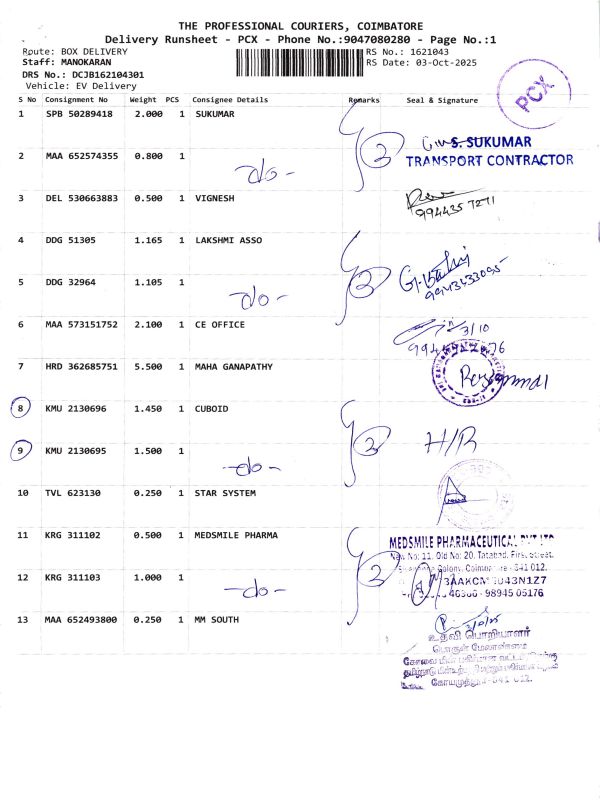 THE PROFESSIONAL COURIERS, COIMBATORE
Delivery Runsheet - PCX - Phone No.:9047080280 - Page No.:1
Route: BOX DELIVERY
RS No.: 1621043
Staff: MANOKARAN
RS Date: 03-Oct-2025
DRS No.: DCJB162104301
Vehicle: EV Delivery
PCX
S No Consignment No Weight PCS Consignee Details Remarks Seal & Signature
1 SPB 50289418 2.000 1 SUKUMAR
S. SUKUMAR
2
2 MAA 652574355 0.800 1 -do-
TRANSPORT CONTRACTOR
3 DEL 530663883 0.500 1 VIGNESH
9944357271
4 DDG 51305 1.165 1 LAKSHMI ASSO
2
5 DDG 32964 1.105 1 -do-
9943433095
6 MAA 573151752 2.100 1 CE OFFICE
3/10
7 HRD 362685751 5.500 1 MAHA GANAPATHY
8 KMU 2130696 1.450 1 CUBOID
2 H/R
9 KMU 2130695 1.500 1 -do-
10 TVL 623130 0.250 1 STAR SYSTEM
11 KRG 311102 0.500 1 MEDSMILE PHARMA
MEDSMILE PHARMACEUTICAL PVT LTD
New No: 11, Old No: 20, Tatabad, First Street,
Colony, Coimbatore - 641 012.
2
12 KRG 311103 1.000 1 -do-
98945 05176
13 MAA 652493800 0.250 1 MM SOUTH
உதவி பொறியாளர்
பொருள் மேலாண்மை